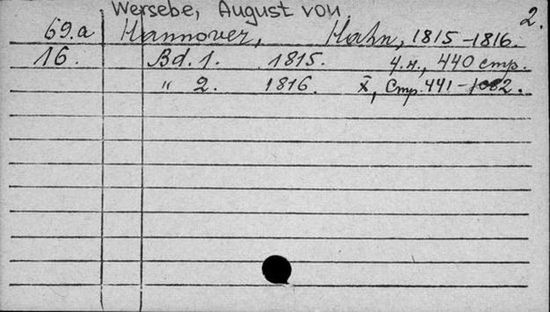 Wersebe, August von
2.
69.a Hannover, Hahn, 1815-1816.
16. Bd. 1. 1815. 4.н., 440 стр.
" 2. 1816. X, Стр. 441-1082.